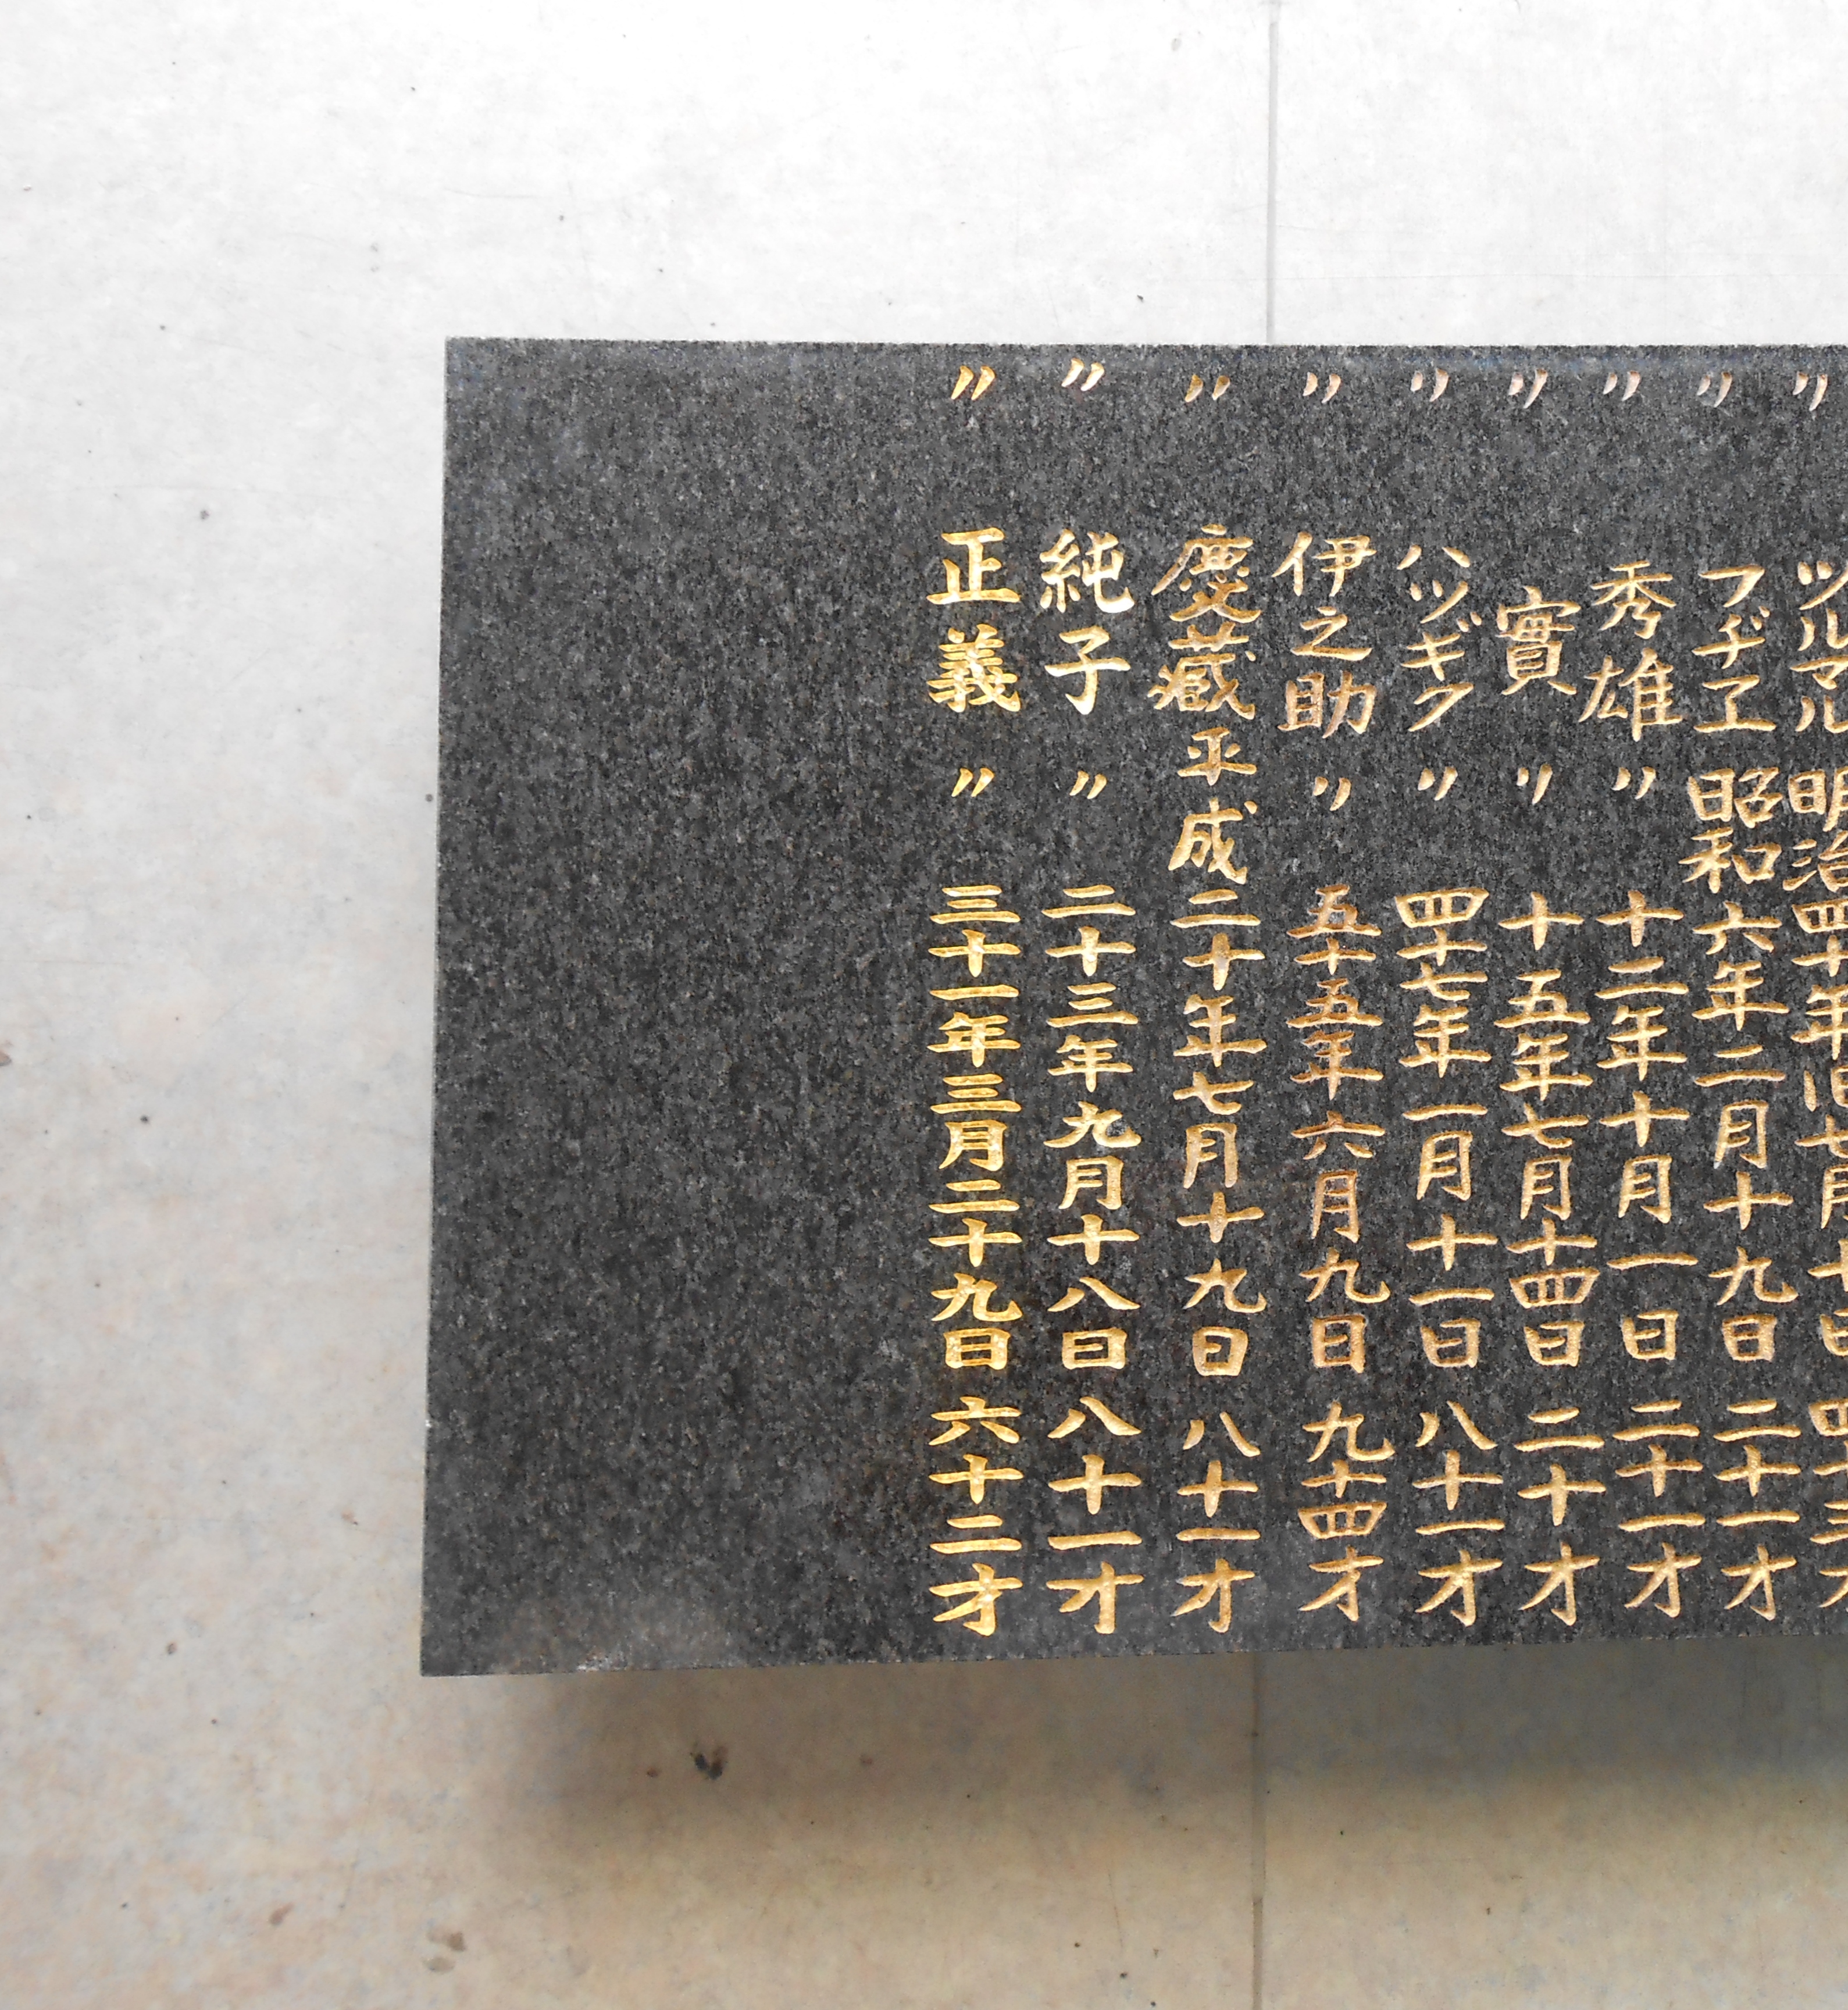 〃 ツルマル 明治四十年旧七月十
〃 フヂヱ 昭和六年二月十九日 二十一才
〃 秀雄 〃 十二年十月一日 二十一才
〃 實 〃 十五年七月十四日 二十才
〃 ハツギク 〃 四十七年一月十一日 八十一才
〃 伊之助 〃 五十五年六月九日 九十四才
〃 慶藏 平成二十年七月十九日 八十一才
〃 純子 〃 二十三年九月十八日 八十一才
〃 正義 〃 三十一年三月二十九日 六十二才